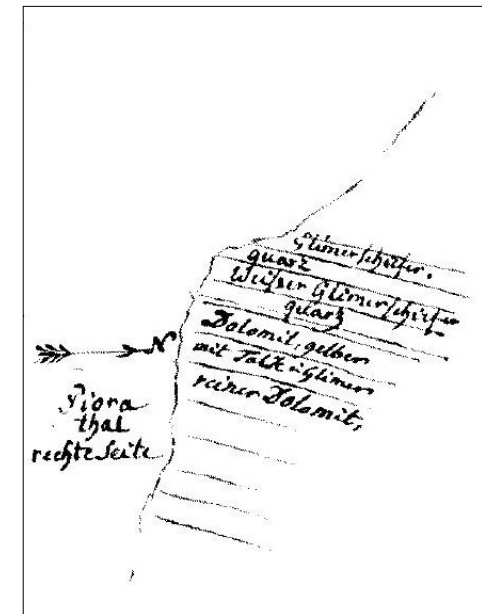 Glimerschiefer.
quarz
Weisser Glimerschiefer
quarz
Dolomit, gelber
mit Talk u Glimer
reiner Dolomit,
N
Piora
thal
rechte Seite